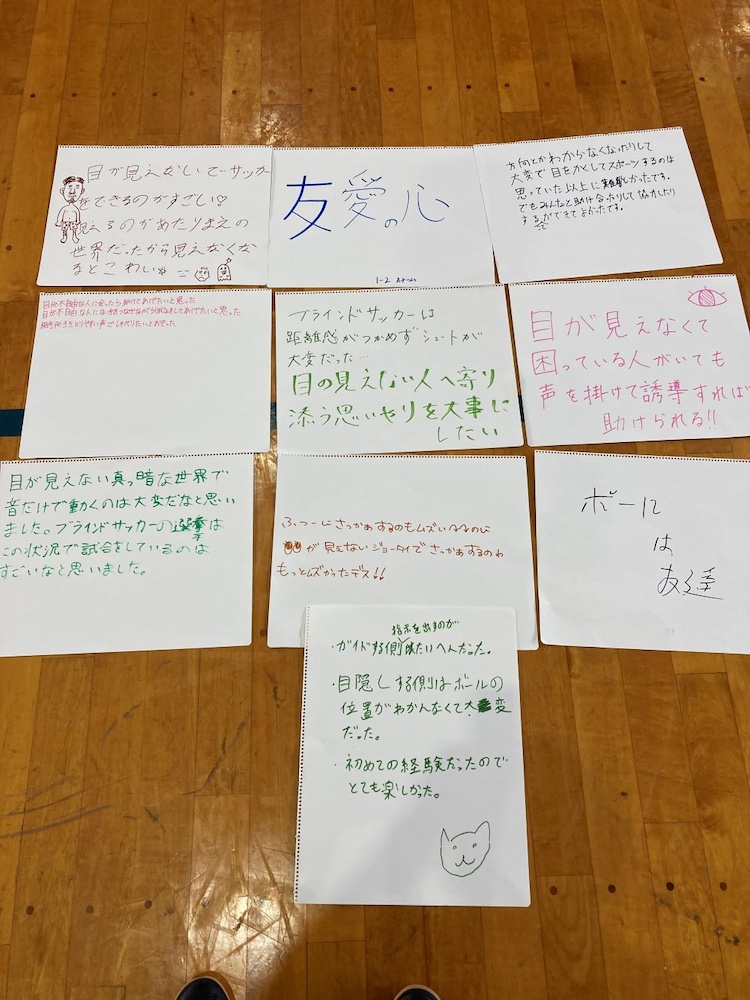 目が見えないでサッカー
をできるのがすごい♡
見えるのがあたりまえの
世界だったから見えなくな
るとこわいね
友愛の心
1-2
方向とかわからなくなったりして
大変で目をかくしてスポーツするのは
思っていた以上に難しかったです。
でもみんなと助け合ったりして協力したり
するができてよかったです。
目が不自由な人に会ったら助けてあげたいと思った
相手が聞きとりやすい声でしゃべりたいとおもった
ブラインドサッカーは
距離感がつかめずシュートが
大変だった…
目の見えない人へ寄り
添う思いやりを大事に
したい
目が見えなくて
困っている人がいても
声を掛けて誘導すれば
助けられる!!
目が見えない真っ暗な世界で
音だけで動くのは大変だなと思い
ました。ブラインドサッカーの選手は
この状況で試合をしているのは
すごいなと思いました。
ふつーにさっかぁするのもムズいのに
が見えないジョータイでさっかぁするのわ
もっとムズかったデス!!
ボールは
友達
指示を出すのが
・ガイドする側はたいへんだった。
・目隠しする側はボールの
位置がわかんなくて大変
だった。
・初めての経験だったので
とても楽しかった。